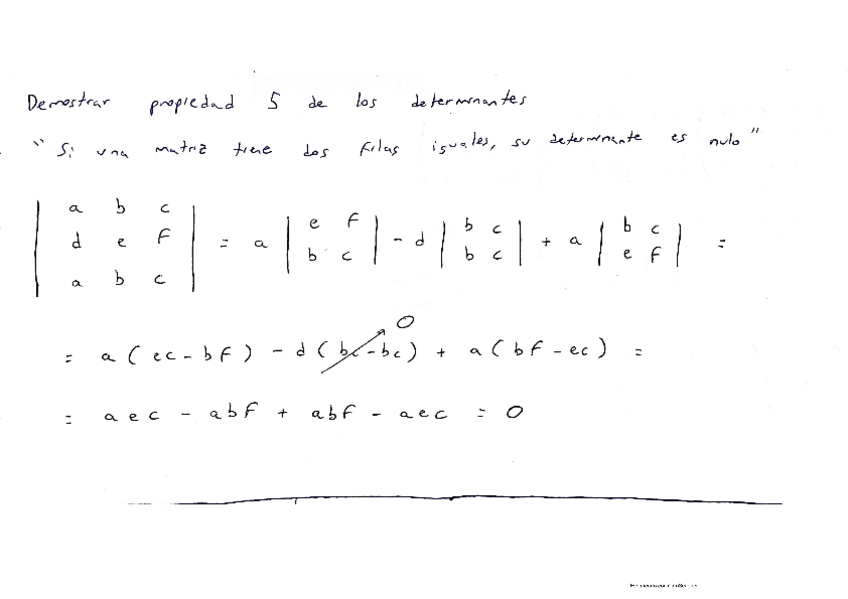 Demostrar propiedad 5 de los determinantes
" Si una matriz tiene dos filas iguales, su determinante es nulo "
| a b c |
| d e f | = a | e f | - d | b c | + a | b c | =
| a b c | | b c | | b c | | e f |
= a ( ec - bf ) - d ( bc - bc ) 0 + a ( bf - ec ) =
= aec - abf + abf - aec = 0